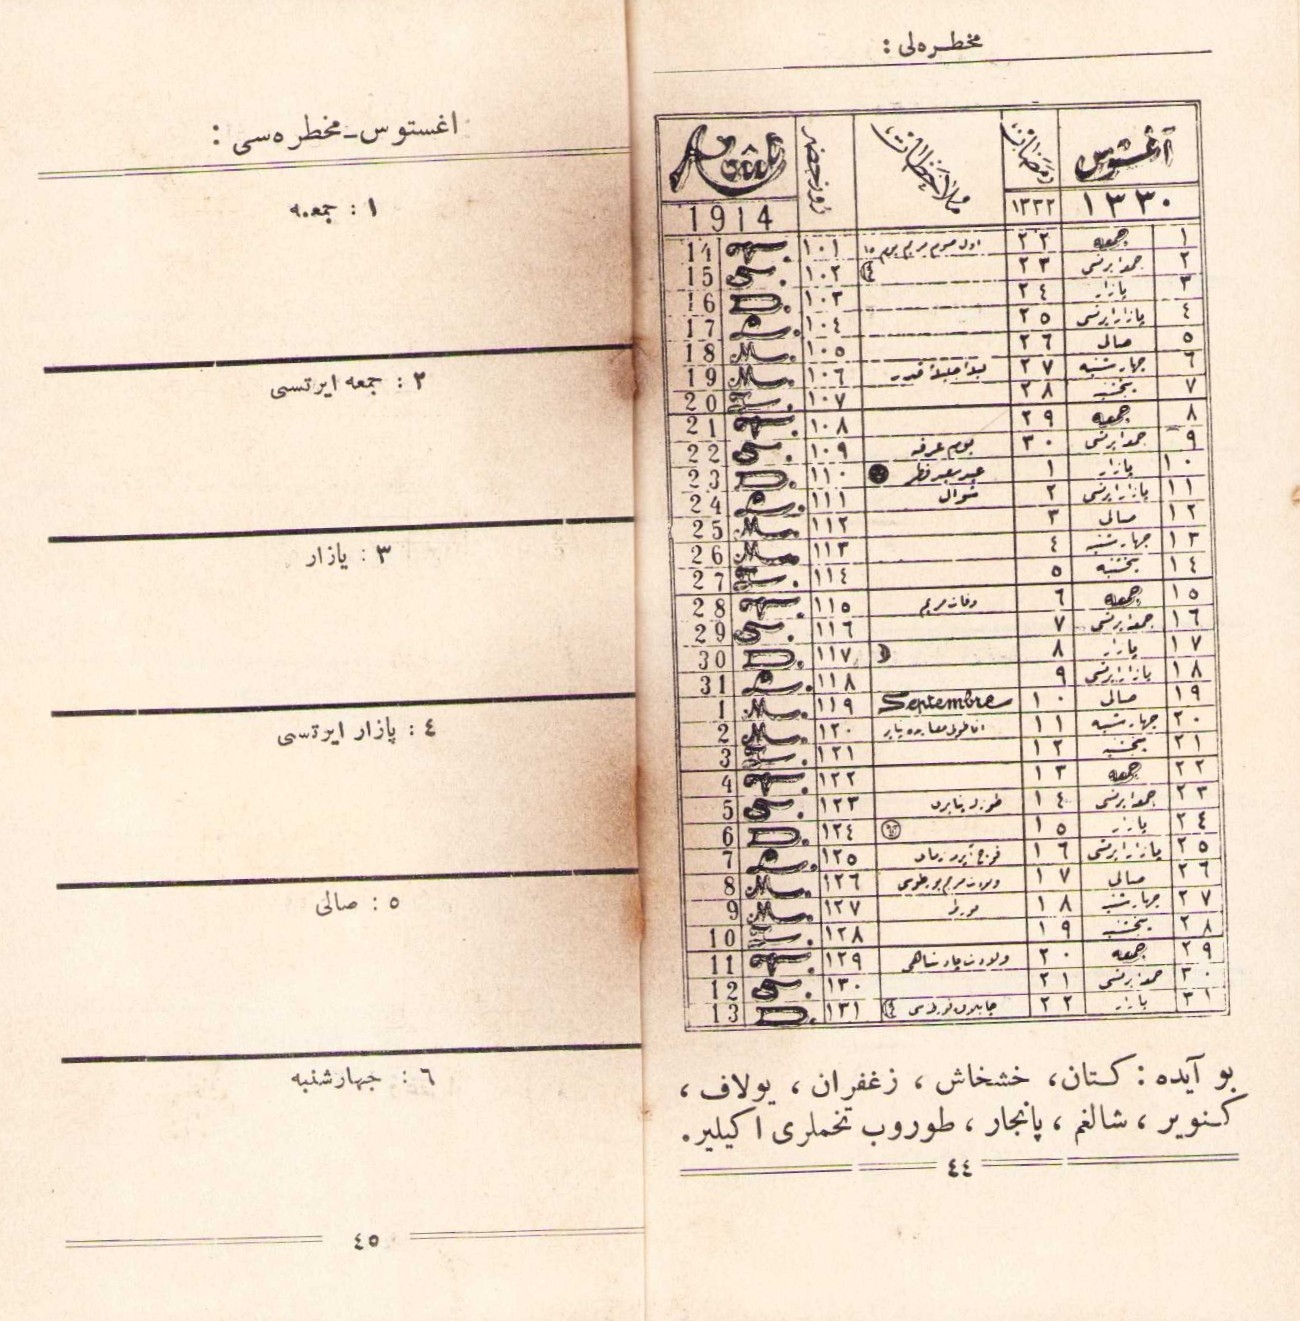 مخطره‌لی :
آغستوس رمضان ملاحظات روز خضر Août
١٣٣٠ ١٣٣٢ 1914
١ جمعه ٢٢ اول صوم مریم یوم ١٥ ١٠١ V. 14
٢ جمعه ایرتسی ٢٣ ١٠٢ S. 15
٣ پازار ٢٤ ١٠٣ D. 16
٤ پازار ایرتسی ٢٥ ١٠٤ L. 17
٥ صالی ٢٦ ١٠٥ M. 18
٦ چهارشنبه ٢٧ لیلهٔ جلیلهٔ قدر ١٠٦ M. 19
٧ پنجشنبه ٢٨ ١٠٧ J. 20
٨ جمعه ٢٩ ١٠٨ V. 21
٩ جمعه ایرتسی ٣٠ یوم عرفه ١٠٩ S. 22
١٠ پازار ١ عید سعید فطر ١١٠ D. 23
١١ پازار ایرتسی ٢ شوال ١١١ L. 24
١٢ صالی ٣ ١١٢ M. 25
١٣ چهارشنبه ٤ ١١٣ M. 26
١٤ پنجشنبه ٥ ١١٤ J. 27
١٥ جمعه ٦ وفات مریم ١١٥ V. 28
١٦ جمعه ایرتسی ٧ ١١٦ S. 29
١٧ پازار ٨ ١١٧ D. 30
١٨ پازار ایرتسی ٩ ١١٨ L. 31
١٩ صالی ١٠ Septembre ١١٩ M. 1
٢٠ چهارشنبه ١١ ١٢٠ M. 2
٢١ پنجشنبه ١٢ ١٢١ J. 3
٢٢ جمعه ١٣ ١٢٢ V. 4
٢٣ جمعه ایرتسی ١٤ ١٢٣ S. 5
٢٤ پازار ١٥ ١٢٤ D. 6
٢٥ پازار ایرتسی ١٦ ١٢٥ L. 7
٢٦ صالی ١٧ ولادت مریم ١٢٦ M. 8
٢٧ چهارشنبه ١٨ ١٢٧ M. 9
٢٨ پنجشنبه ١٩ ١٢٨ J. 10
٢٩ جمعه ٢٠ ولادت پادشاهی ١٢٩ V. 11
٣٠ جمعه ایرتسی ٢١ ١٣٠ S. 12
٣١ پازار ٢٢ ١٣١ D. 13
بو آیده : کتان، خشخاش ، زغفران ، یولاف ،
کنویر ، شالغم ، پانجار ، طوروب تخملری اکیلیر.
٤٤
اغستوس ـ مخطره‌سی :
١ : جمعه
٢ : جمعه ایرتسی
٣ : یازار
٤ : پازار ایرتسی
٥ : صالی
٦ : جهارشنبه
٤٥